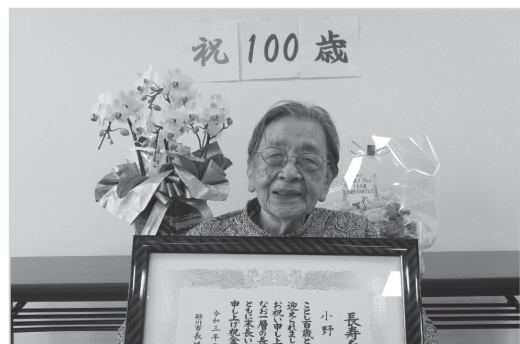 祝100歳
長寿
小野
ことし百歳と
迎えられまし
お祝い申し上
なお一層の長
ともに末長い
申し上げ祝金
令和三年
砂川市長